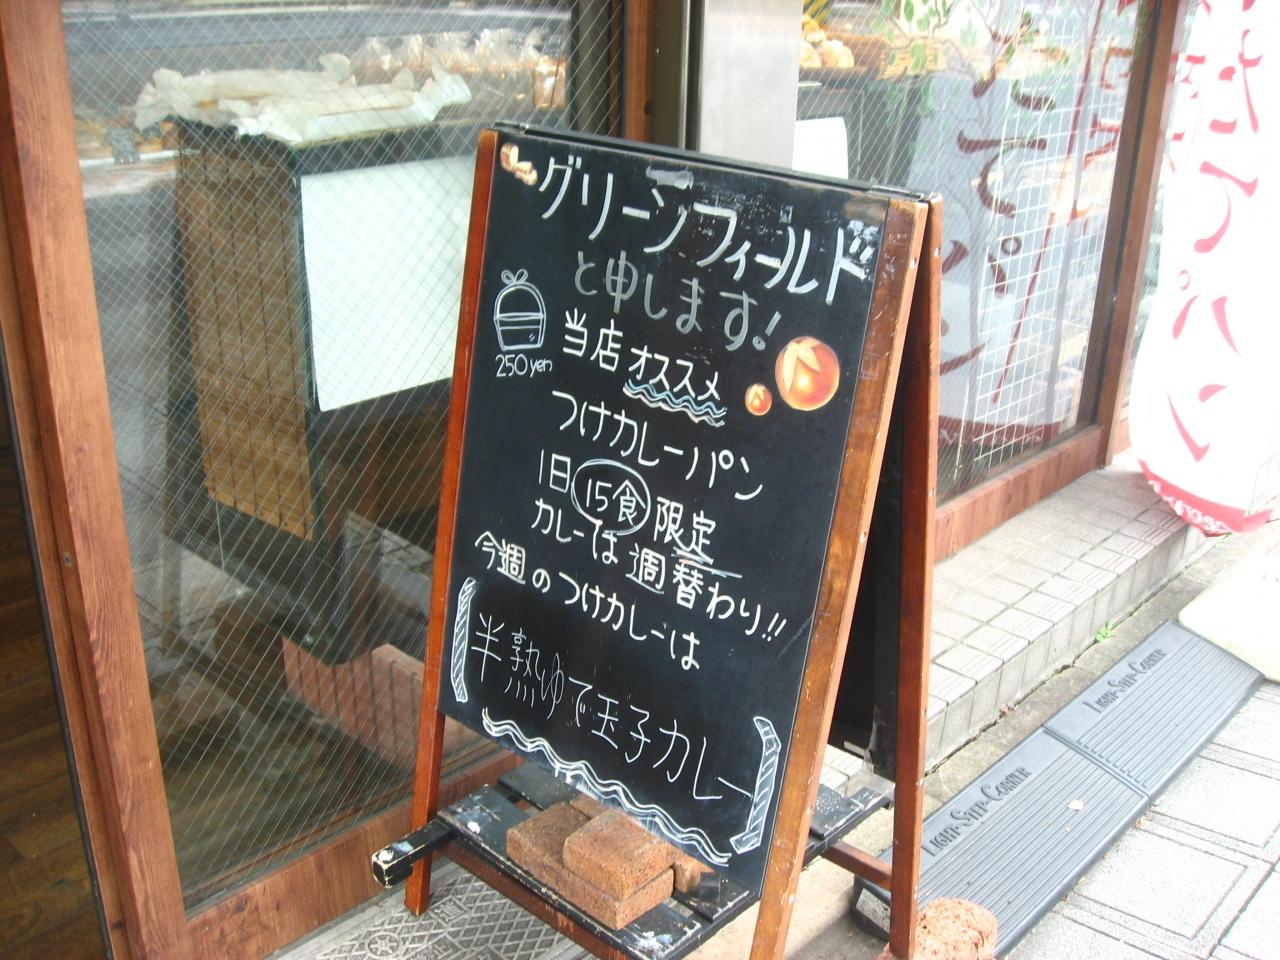 グリーンフィールド
と申します!
250yen
当店オススメ
つけカレーパン
1日15食限定
カレーは週替わり!!
今週のつけカレーは
半熟ゆで玉子カレー
たてパン
LIGHT-STEP-CORNER
LIGHT-STEP-CORNER